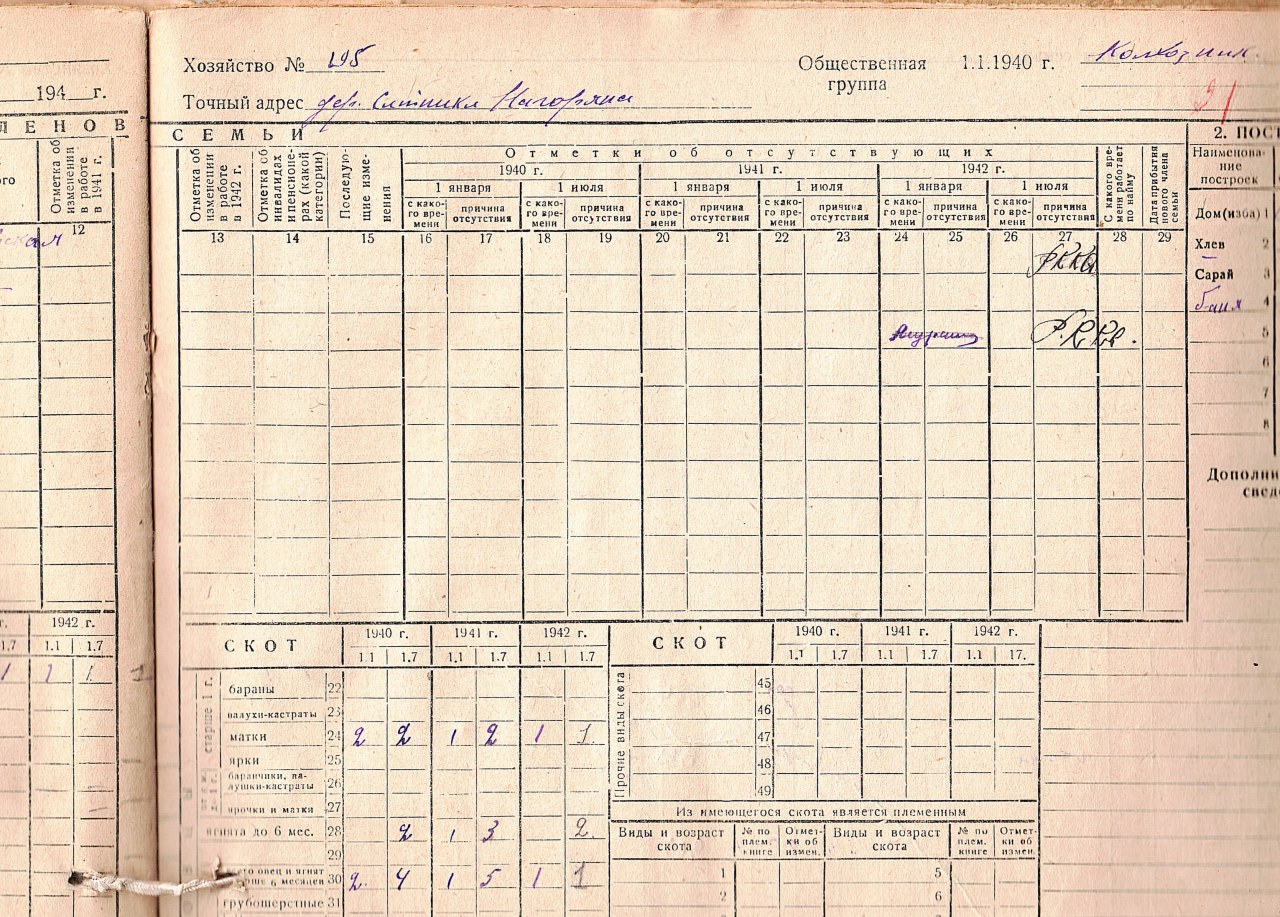 194 г.
ЛЕНОВ
Отметка об изменении в работе в 1941 г.
12
Хозяйство № 195
Точный адрес дер. Ситники Нагоряна
Общественная группа 1.1.1940 г. Колхозник
СЕМЬИ
Отметка об изменении в работе в 1942 г.
Отметка об инвалидах и пенсионерах (какой категории)
Последующие изменения
Отметки об отсутствующих
1940 г. 1941 г. 1942 г.
1 января 1 июля 1 января 1 июля 1 января 1 июля
с какого времени причина отсутствия с какого времени причина отсутствия с какого времени причина отсутствия с какого времени причина отсутствия с какого времени причина отсутствия с какого времени причина отсутствия
С какого времени работает по найму
Дата прибытия нового члена семьи
13 14 15 16 17 18 19 20 21 22 23 24 25 26 27 28 29
РККА
Р.ККА.
2. ПОСТ
Наименование построек
Дом (изба) 1
Хлев 2
Сарай 3
баня 4
5
6
7
8
Дополни
сведе
1942 г.
1.7 1.1 1.7
1 1 1 1
СКОТ 1940 г. 1941 г. 1942 г.
1.1 1.7 1.1 1.7 1.1 1.7
старше 1 г.
бараны 22
валухи-кастраты 23
матки 24 2 2 1 2 1 1
ярки 25
баранчики, валушки-кастраты 26
ярочки и матки 27
ягнята до 6 мес. 28 2 1 3 2
29
овец и ягнят 6 месяцев 30 2 4 1 5 1 1
грубошерстные 31
СКОТ 1940 г. 1941 г. 1942 г.
1.1 1.7 1.1 1.7 1.1 17.
Прочие виды скота
45
46
47
48
49
Из имеющегося скота является племенным
Виды и возраст скота № по плем. книге Отметки об измен. Виды и возраст скота № по плем. книге Отметки об измен.
1 5
2 6